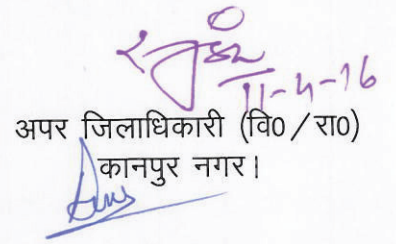 11-4-16
अपर जिलाधिकारी (वि0/रा0)
कानपुर नगर।